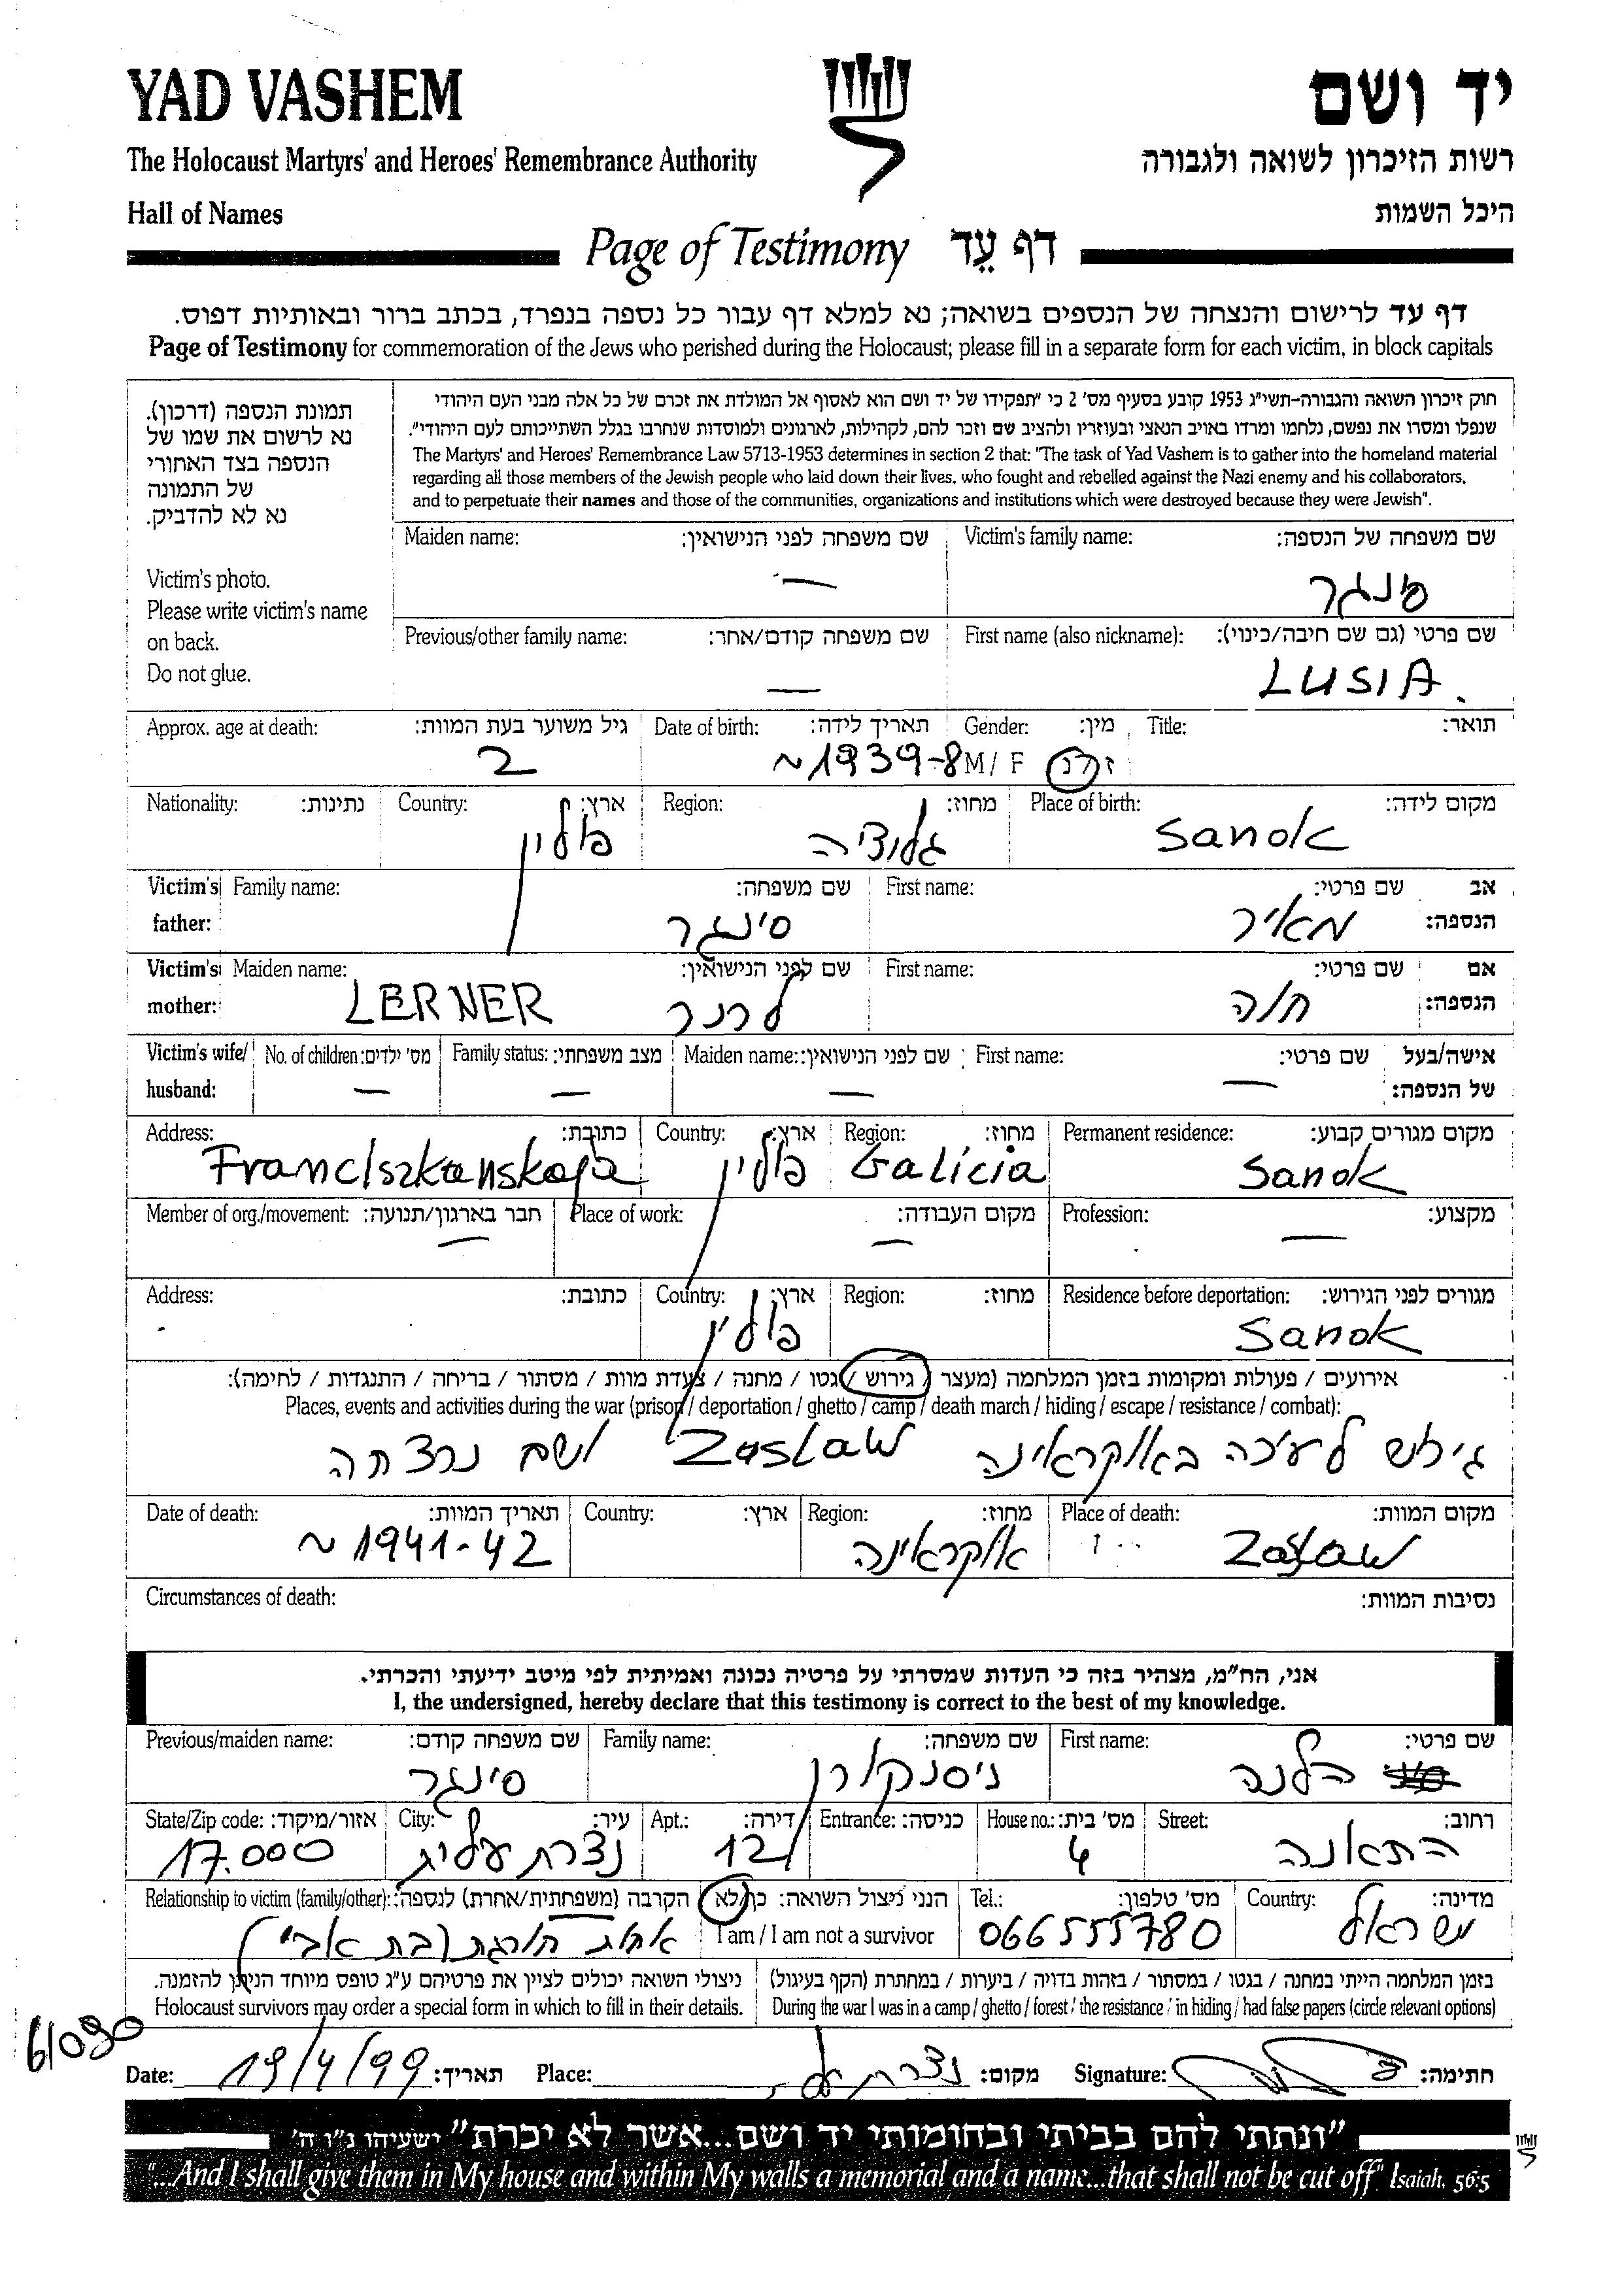 YAD VASHEM
יד ושם
The Holocaust Martyrs' and Heroes' Remembrance Authority
רשות הזיכרון לשואה ולגבורה
Hall of Names
היכל השמות
Page of Testimony דף עֵד
דף עד לרישום והנצחה של הנספים בשואה; נא למלא דף עבור כל נספה בנפרד, בכתב ברור ובאותיות דפוס.
Page of Testimony for commemoration of the Jews who perished during the Holocaust; please fill in a separate form for each victim, in block capitals
תמונת הנספה (דרכון).
נא לרשום את שמו של
הנספה בצד האחורי
של התמונה
נא לא להדביק.
Victim's photo.
Please write victim's name
on back.
Do not glue.
חוק זיכרון השואה והגבורה-תשי"ג 1953 קובע בסעיף מס' 2 כי "תפקידו של יד ושם הוא לאסוף אל המולדת את זכרם של כל אלה מבני העם היהודי
שנפלו ומסרו את נפשם, נלחמו ומרדו באויב הנאצי ובעוזריו ולהציב שם וזכר להם, לקהילות, לארגונים ולמוסדות שנחרבו בגלל השתייכותם לעם היהודי".
The Martyrs' and Heroes' Remembrance Law 5713-1953 determines in section 2 that: "The task of Yad Vashem is to gather into the homeland material
regarding all those members of the Jewish people who laid down their lives, who fought and rebelled against the Nazi enemy and his collaborators,
and to perpetuate their names and those of the communities, organizations and institutions which were destroyed because they were Jewish".
Maiden name: שם משפחה לפני הנישואין: Victim's family name: שם משפחה של הנספה:
— סנגר
Previous/other family name: שם משפחה קודם/אחר: First name (also nickname): שם פרטי (גם שם חיבה/כינוי):
— LUSIA.
Approx. age at death: גיל משוער בעת המוות: Date of birth: תאריך לידה: Gender: מין: Title: תואר:
2 ~1939-8 M/ F ז/נ
Nationality: נתינות: Country: ארץ: Region: מחוז: Place of birth: מקום לידה:
פולין Sanok
Victim's Family name: שם משפחה: First name: שם פרטי: אב
father: סינגר מאיר הנספה:
Victim's Maiden name: שם לפני הנישואין: First name: שם פרטי: אם
mother: LERNER לרנר חוה הנספה:
Victim's wife/ No. of children: מס' ילדים: Family status: מצב משפחתי: Maiden name: שם לפני הנישואין: First name: שם פרטי: אישה/בעל
husband: — — — — של הנספה:
Address: כתובת: Country: ארץ: Region: מחוז: Permanent residence: מקום מגורים קבוע:
Franciszkanskaja פולין Galicia Sanok
Member of org./movement: חבר בארגון/תנועה: Place of work: מקום העבודה: Profession: מקצוע:
— — —
Address: כתובת: Country: ארץ: Region: מחוז: Residence before deportation: מגורים לפני הגירוש:
- פולין Sanok
אירועים / פעולות ומקומות בזמן המלחמה (מעצר / גירוש / גטו / מחנה / צעדת מוות / מסתור / בריחה / התנגדות / לחימה):
Places, events and activities during the war (prison / deportation / ghetto / camp / death march / hiding / escape / resistance / combat):
גירוש לעירה באוקראינה Zaslaw ושם נרצחה
Date of death: תאריך המוות: Country: ארץ: Region: מחוז: Place of death: מקום המוות:
~ 1941-42 אוקראינה Zaslaw
Circumstances of death: נסיבות המוות:
אני, הח"מ, מצהיר בזה כי העדות שמסרתי על פרטיה נכונה ואמיתית לפי מיטב ידיעתי והכרתי.
I, the undersigned, hereby declare that this testimony is correct to the best of my knowledge.
Previous/maiden name: שם משפחה קודם: Family name: שם משפחה: First name: שם פרטי:
סינגר ניסנקורן הלנה
State/Zip code: אזור/מיקוד: City: עיר: Apt.: דירה: Entrance: כניסה: House no.: מס' בית: Street: רחוב:
17.000 נצרת עלית 12 4 התאנה
Relationship to victim (family/other): הקרבה (משפחתית/אחרת) לנספה: הנני ניצול השואה: כן/לא Tel.: מס' טלפון: Country: מדינה:
אחות חורגת (בת אבי) I am / I am not a survivor 066555780 ישראל
ניצולי השואה יכולים לציין את פרטיהם ע"ג טופס מיוחד הניתן להזמנה. בזמן המלחמה הייתי במחנה / בגטו / במסתור / בזהות בדויה / ביערות / במחתרת (הקף בעיגול)
Holocaust survivors may order a special form in which to fill in their details. During the war I was in a camp / ghetto / forest / the resistance / in hiding / had false papers (circle relevant options)
6/090
Date: 19/4/99 תאריך: Place: נצרת על מקום: Signature: חתימה:
"ונתתי להם בביתי ובחומותי יד ושם...אשר לא יכרת" ישעיהו נ"ו ה'
"...And I shall give them in My house and within My walls a memorial and a name...that shall not be cut off" Isaiah, 56:5